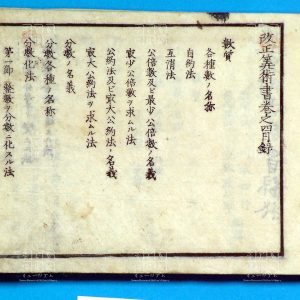 改正筭術書巻之四目録
数質
各種数ノ名称
自約法
互消法
公倍数及ビ最少公倍数ノ名義
最少公倍数ヲ求ムル法
公約法及ビ最大公約法ノ名義
最大公約法ヲ求ムル法
分数ノ名義
分数各種ノ名称
分数化法
第一節 整数ヲ分数ニ化スル法